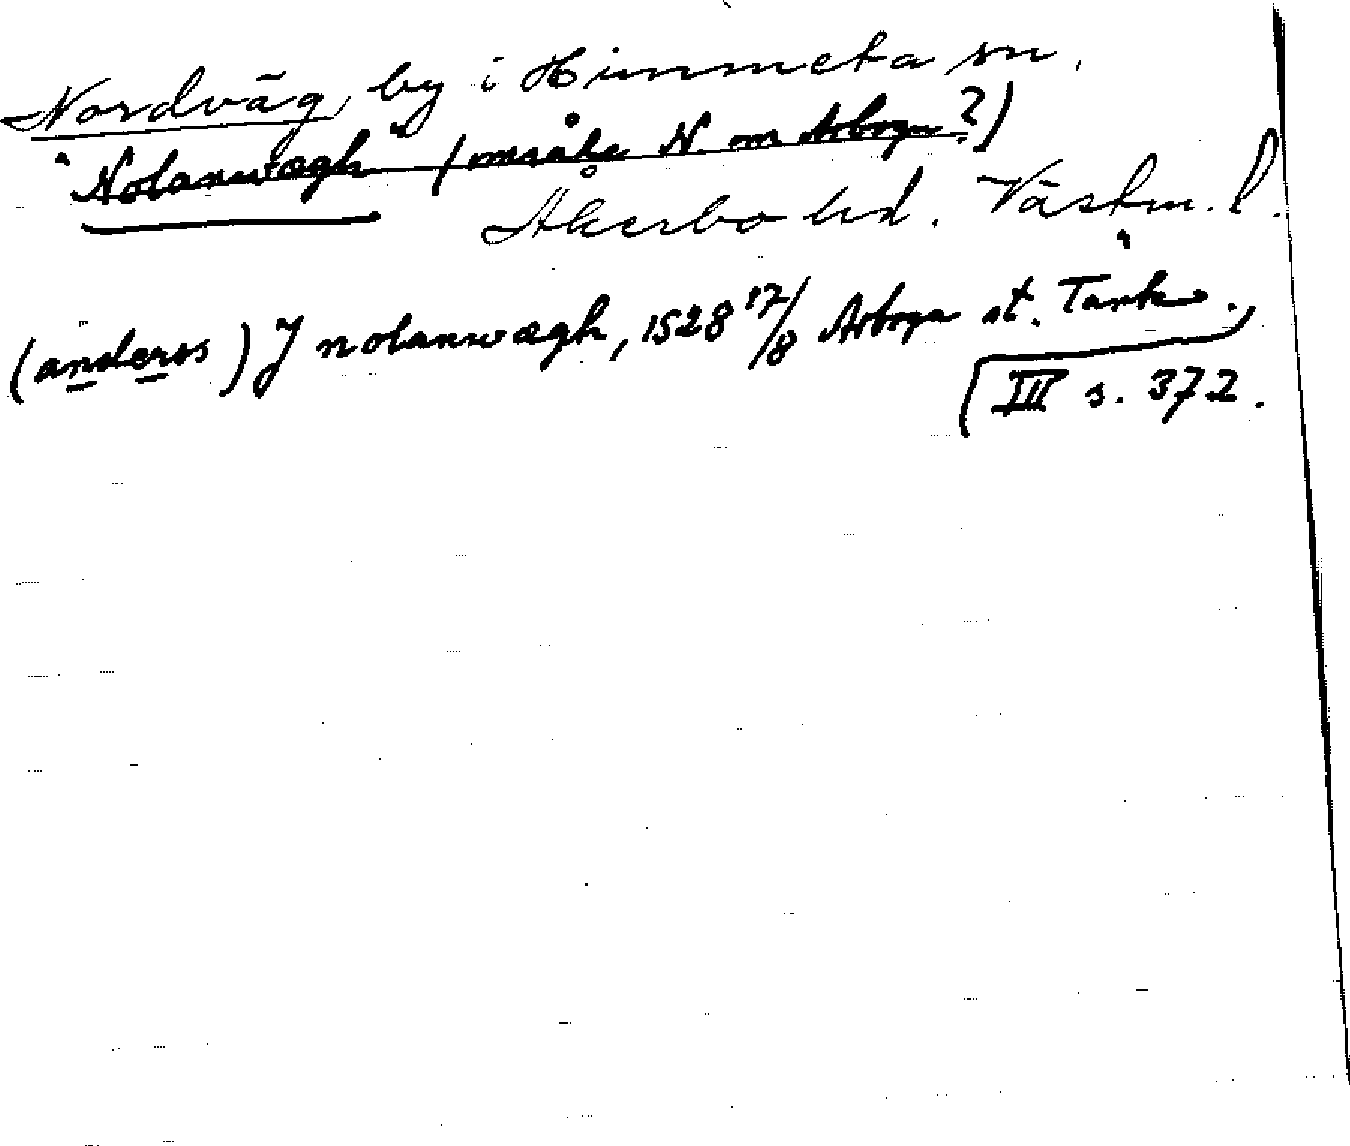 Nordväg, by i Himmeta sn.
"Nolanwægh" (område N. om Arboga?)
Åkerbo hd. Västm. l.
(anderss) J nolanwægh, 1528 17/8 Arboga st. Tänk.,
III s. 372.